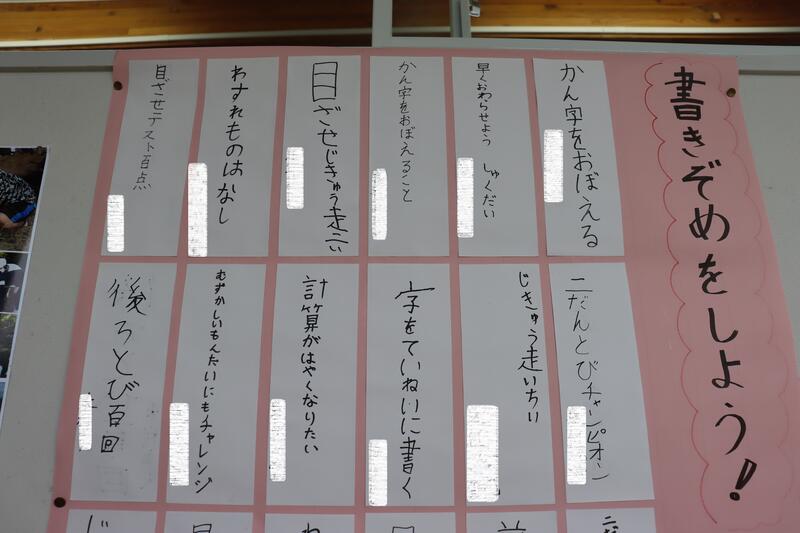 書きぞめをしよう!
かん字をおぼえる
早くおわらせよう しゅくだい
かん字をおぼえること
目ざせじきゅう走二い
わすれものはなし
目ざせテスト百点
二だんとびチャンピオン
じきゅう走いちい
字をていねいに書く
計算がはやくなりたい
むずかしいもんだいにもチャレンジ
後ろとび百回